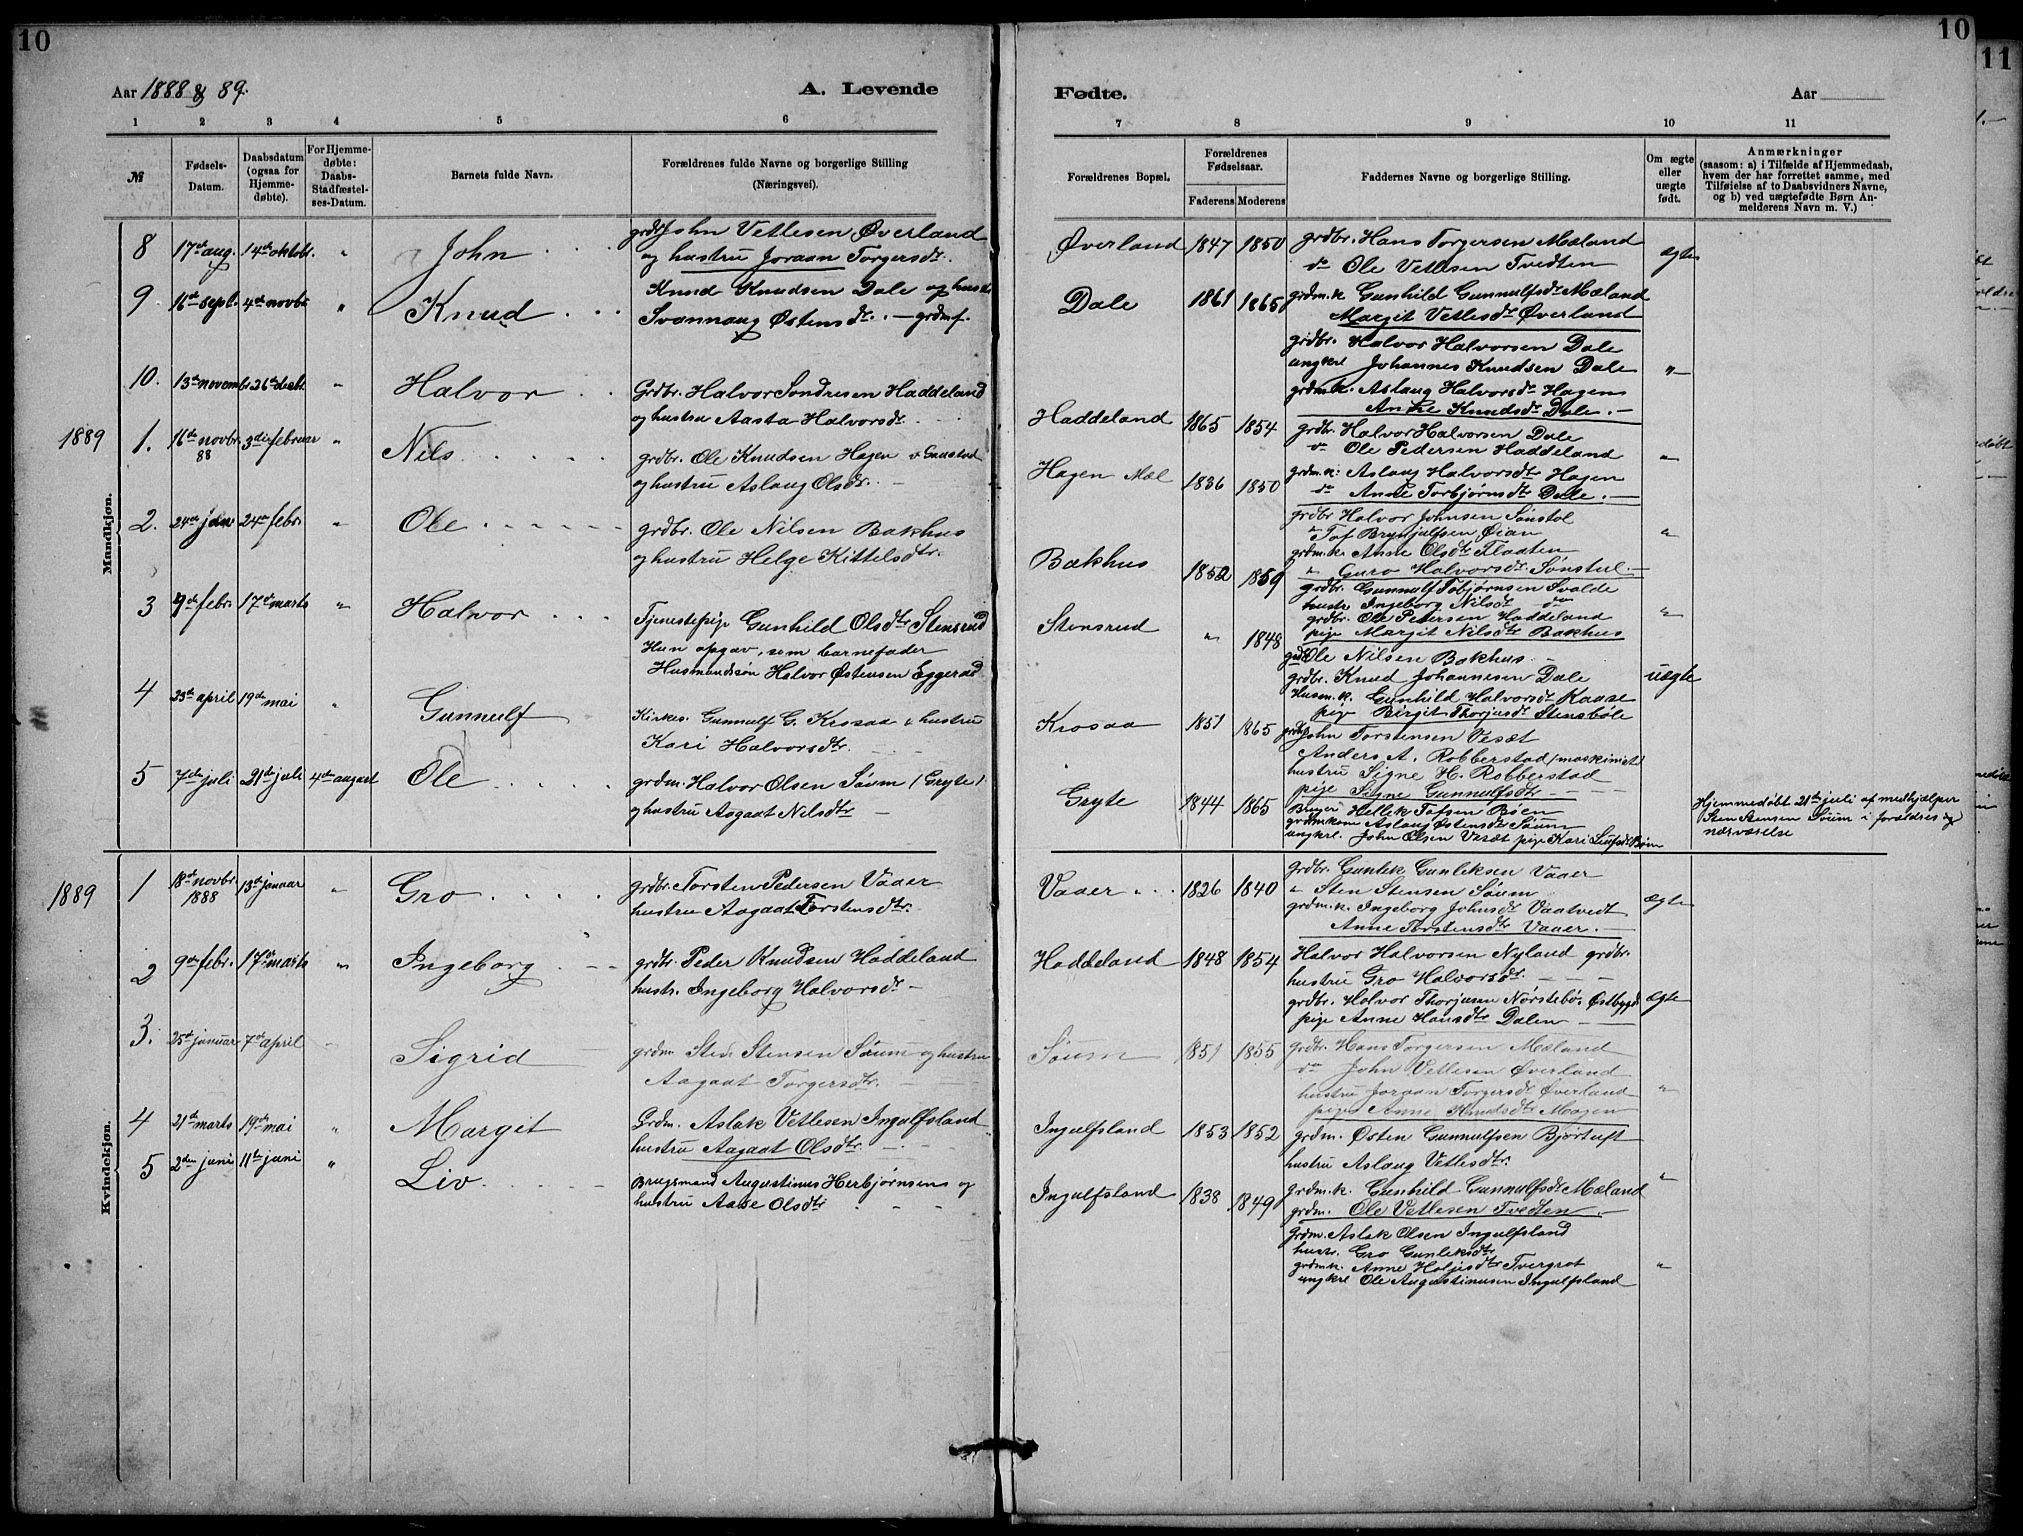 10
Aar 1888 & 89.
A. Levende
1 2 3 4 5 6
№
Fødsels-
Datum.
Daabsdatum
(ogsaa for
Hjemme-
døbte).
For Hjemme-
døbte:
Daabs-
Stadfæstel-
ses-Datum.
Barnets fulde Navn.
Forældrenes fulde Navne og borgerlige Stilling
(Næringsvei).
Mandkjøn.
8 17de aug. 14de oktobr. " John
grdbr John Vetlesen Øverland
og hustru Joraan Torgersdr.
9 16de septbr. 4de novbr " Knud
Knud Knudsen Dale og hustr
Svannaug Østensdr. — grdmf.
10. 13de novembr. 26de decbr. " Halvor
Grdbr. Halvor Sondresen Haddeland
og hustru Aasta Halvorsdr.
1889
1. 16de novbr. 88 3die februar " Nils
grdbr. Ole Knudsen Hagen
og hustru Aslaug Olsdr.
2. 24de jan 24de febr. " Ole
grdbr. Ole Nilsen Bakhus
og hustru Helge Kittelsdtr.
3 9de febr. 17de marts " Halvor
Tjenestepige Gunhild Olsdtr Stensrud
Hun opgav, som barnefader
Husmandssøn Halvor Østensen Eggerud
4 23de april 19de mai " Gunnulf
Kirkes. Gunnulf G. Krosaa & hustru
Kari Halvorsdtr.
5 7de juli 21de juli 4de august Ole
grdm. Halvor Olsen Søum (Gryte)
og hustru Aagaat Nilsdtr —
Kvindekjøn.
1889
1 18de novbr. 1888 13de januar " Gro
grdbr. Torsten Pedersen Vaaer
hustru Aagaat Torstensdtr.
2 9de febr. 17de marts " Ingeborg
grdbr. Peder Knudsen Haddeland
hustr. Ingeborg Halvorsdr —
3. 25de januar 7de april Sigrid
grdm Sten Stensen Søum og hustru
Aagaat Torgersdtr.
4 21de marts 19de mai " Margit
Grdm. Aslak Vetlesen Ingulfsland
hustru Aagaat Olsdtr.
5 2den juni 11te juni " Liv
Brugsmand Augustinus Herbjørnsens og
hustru Aase Olsdtr
10
11
Fødte.
Aar
7 8 9 10 11
Forældrenes Bopæl.
Forældrenes
Fødselsaar.
Faderens Moderens
Faddernes Navne og borgerlige Stilling.
Om ægte
eller
uægte
født.
Anmærkninger
(saasom: a) i Tilfælde af Hjemmedaab,
hvem der har forrettet samme, med
Tilføielse af to Daabsvidners Navne,
og b) ved uægtefødte Børn An-
melderens Navn m. V.)
Øverland 1847 1850
grdbr. Hans Torgersen Mæland
do Ole Vetlesen Tvedten
ægte
grdm.k Gunhild Gunnulfsdr Mæland
Margit Vetlesdr Øverland
Dale 1861 1865
grdbr. Halvor Halvorsen Dale
ungkrl Johannes Knudsen Dale
"
grdm.k. Aslaug Halvorsdr Hagens
Anne Knudsdr Dale. —
Haddeland 1865 1854
grdbr. Halvor Halvorsen Dale
do Ole Pedersen Haddeland
"
grdm.k: Aslaug Halvorsdtr Hagen
do Anne Torbjørnsdtr Dale. —
Hagen Mæl 1836 1850
grdbr Halvor Johnsen Sønstøl
" Tof Brynjulfsen Øian
"
grdm.k. Anne Olsdtr Flaaten
" Guro Halvorsdr. Sønstul. —
Bakhus 1852 1859
grdbr. Gunnulf Tobjørnsen Svalde
hustr. Ingeborg Nilsdr do
"
grdbr. Ole Petersen Haddeland
pige Margit Nilsdtr Bakhus
Stensrud " 1848
grdbr Ole Nilsen Bakhus
grdbr. Knud Johannesen Dale
uægte
Husm.k. Gunhild Halvorsdr Kaase
pige Birgit Thorjusdr Stensbøle
Krosaa 1851 1865
grdbr John Torstensen Vesæt
Anders A. Robberstad (maskinist)
hustru Signe H. Robberstad
pige Signe Gunnulfsdtr
Gryte 1844 1865
Bruger Hellek Tofsen Bøen
grdmkone Aslaug Østensdr Søum
ungkrl. John Olsen Vesæt pige Kari
Hjemmedøbt 21de juli af medhjælper
Sten Stensen Søum i forældres
nærværelse
Vaaer 1826 1840
grdbr. Gunlek Gunleksen Vaaer
" Sten Stensen Søum
ægte
grdm.k. Ingeborg Johnsdr Vaatvedt
Anne Torstensdtr Vaaer. —
Haddeland 1848 1854
Halvor Halvorsen Nyland grdbr.
hustru Gro Halvorsdr.
grdbr. Halvor Thorjusen Nørstebø, Østbygd
ægte
pige Anne Hansdtr Dalen
Søum 1851 1855
grdbr. Hans Torgersen Mæland
do John Vetlesen Øverland
hustru Joraan Torgersdr Øverland
"
pige Anne Knudsdtr Mogen
Ingulfsland 1853 1852
grdm. Østen Gunnulfsen Bjørtuft
hustru Aslaug Vetlesdtr.
"
grdm.k. Gunhild Gunnulfsdr Mæland
grdm. Ole Vetlesen Tvedten. —
Ingulfsland 1838 1849
Grdm. Aslak Olsen Ingulfsland
hustr. Gro Gunleksdtr
grdm.k. Anne Holjesdtr Tvergrot
"
ungkrl Ole Augustinusen Ingulfsland